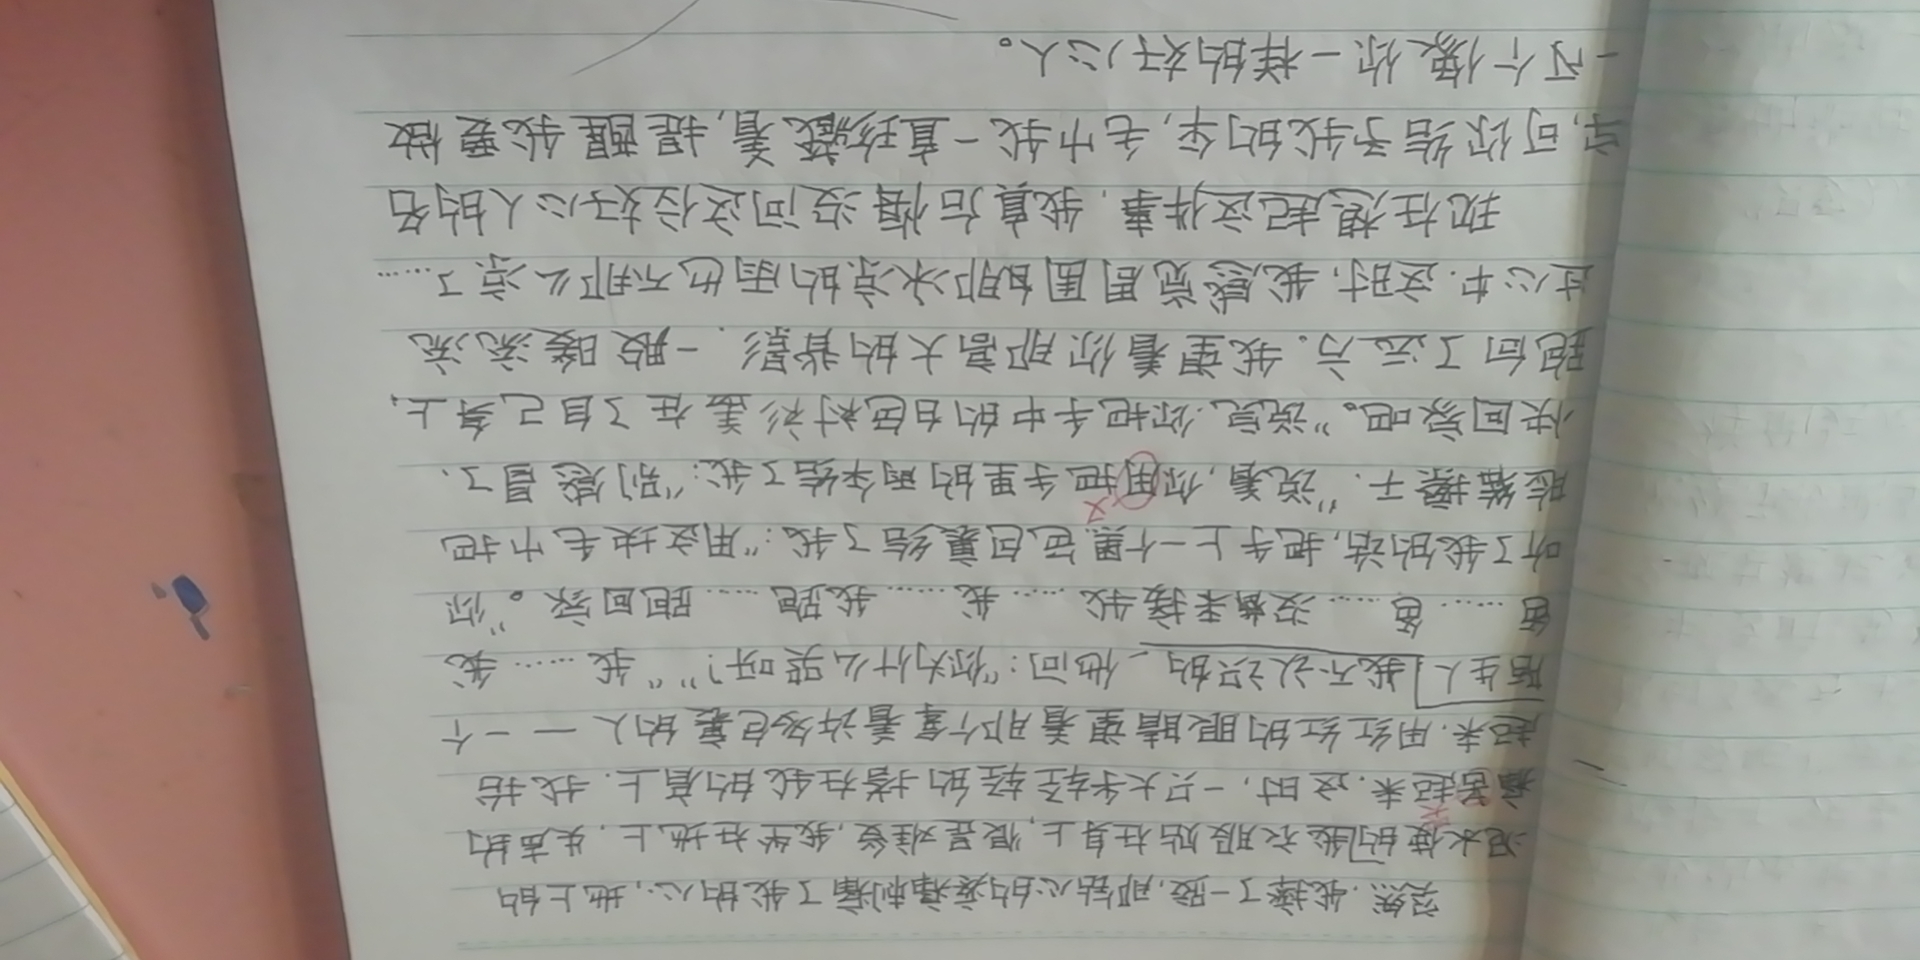 突然,我摔了一跤,那钻心的疼痛刺痛了我的心,地上的
泥水使的我衣服贴在身上,很是难受,我坐在地上,失声的
痛苦起来.这时,一只大手轻轻的搭在我的肩上.我抬
哭
起来.用红红的眼睛望着那个拿着许多包裹的人——一个
陌生人我不认识的,他问:“你为什么哭呀?”“我……我
爸……爸……没有来接我……我……我跑……跑回家。”你
听了我的话,把手上一个黑色包裹给了我:“用这块毛巾把
又
脸给擦干.”说着,你用把手里的雨伞给了我:“别感冒了,
快回家吧。”说完,你把手中的白色衬衫盖在了自己身上,
跑向了远方.我望着你那高大的背影.一股暖流流
过心中.这时,我感觉周围那冰凉的雨也不那么凉了……
现在想起这件事,我真后悔没问这位好心人的名
字,可你给予我的伞,毛巾我一直珍藏着,提醒我要做
一个像你一样的好心人。